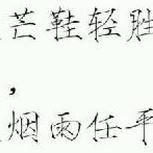 芒鞋轻胜
，
烟雨任平